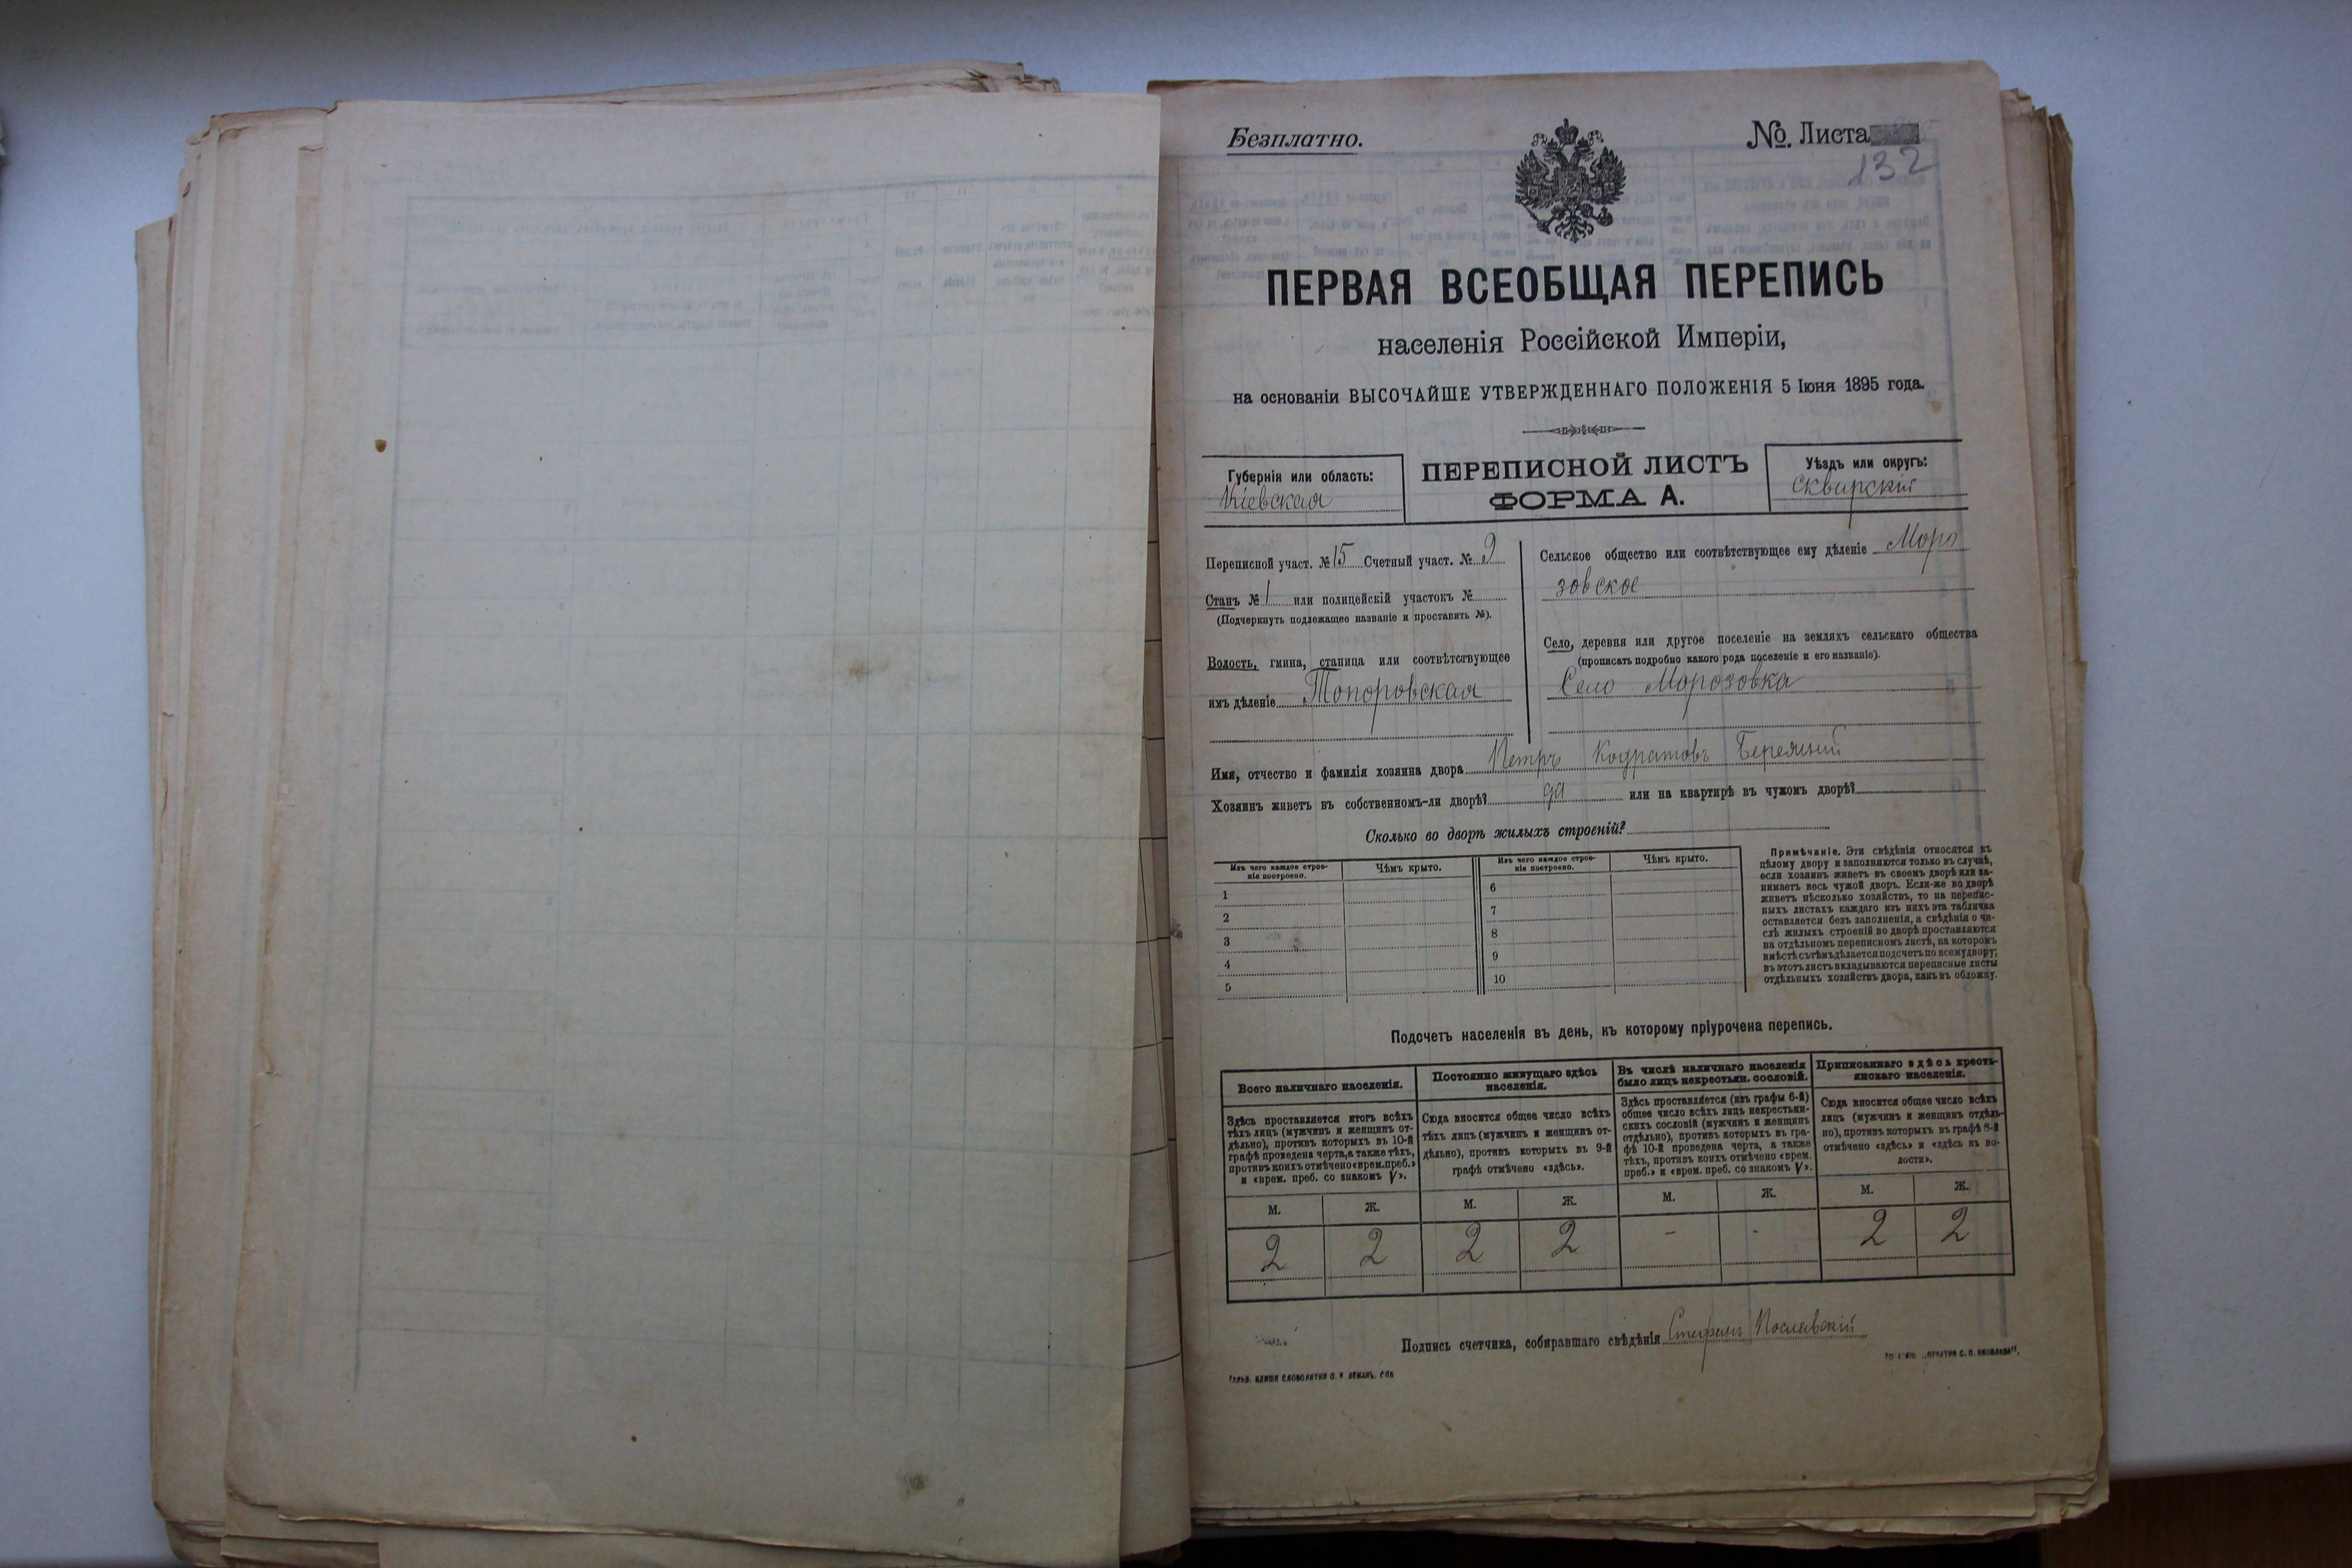 Безплатно.
№. Листа
132
ПЕРВАЯ ВСЕОБЩАЯ ПЕРЕПИСЬ
населенія Россійской Имперіи,
на основаніи ВЫСОЧАЙШЕ УТВЕРЖДЕННАГО ПОЛОЖЕНІЯ 5 Іюня 1895 года.
Губернія или область:
Кіевская
ПЕРЕПИСНОЙ ЛИСТЪ
ФОРМА А.
Уѣздъ или округъ:
Сквирскій
Переписной участ. № 15 Счетный участ. № 9
Станъ № 1 или полицейскій участокъ №
(Подчеркнуть подлежащее названіе и проставить №).
Волость, гмина, станица или соотвѣтствующее
имъ дѣленіе Топоровская
Сельское общество или соотвѣтствующее ему дѣленіе Моро
зовское
Село, деревня или другое поселеніе на земляхъ сельскаго общества
(прописать подробно какого рода поселеніе и его названіе).
Село Морозовка
Имя, отчество и фамилія хозяина двора Петръ Кодратовъ
Хозяинъ живетъ въ собственномъ-ли дворѣ? да или на квартирѣ въ чужомъ дворѣ?
Сколько во дворѣ жилыхъ строеній?
Изъ чего каждое строе-
ніе построено.
Чѣмъ крыто.
Изъ чего каждое строе-
ніе построено.
Чѣмъ крыто.
1
2
3
4
5
6
7
8
9
10
Примѣчаніе. Эти свѣдѣнія относятся къ
цѣлому двору и заполняются только въ случаѣ,
если хозяинъ живетъ въ своемъ дворѣ или за-
нимаетъ весь чужой дворъ. Если-же во дворѣ
живетъ нѣсколько хозяйствъ, то на перепис-
ныхъ листахъ каждаго изъ нихъ эта табличка
оставляется безъ заполненія, а свѣдѣнія о чи-
слѣ жилыхъ строеній во дворѣ проставляются
на отдѣльномъ переписномъ листѣ, на которомъ
вмѣстѣ съ тѣмъ дѣлается подсчетъ по всему двору;
въ этотъ листъ вкладываются переписные листы
отдѣльныхъ хозяйствъ двора, какъ въ обложку.
Подсчетъ населенія въ день, къ которому пріурочена перепись.
Всего наличнаго населенія.
Здѣсь проставляется итогъ всѣхъ
тѣхъ лицъ (мужчинъ и женщинъ от-
дѣльно), противъ которыхъ въ 10-й
графѣ проведена черта, а также тѣхъ,
противъ коихъ отмѣчено «врем. преб.»
и «врем. преб. со знакомъ V».
Постоянно живущаго здѣсь
населенія.
Сюда вносится общее число всѣхъ
тѣхъ лицъ (мужчинъ и женщинъ от-
дѣльно), противъ которыхъ въ 9-й
графѣ отмѣчено «здѣсь».
Въ числѣ наличнаго населенія
было лицъ некрестьян. сословій.
Здѣсь проставляется (изъ графы 6-й)
общее число всѣхъ лицъ некрестьян-
скихъ сословій (мужчинъ и женщинъ
отдѣльно), противъ которыхъ въ гра-
фѣ 10-й проведена черта, а также
тѣхъ, противъ коихъ отмѣчено «врем.
преб.» и «врем. преб. со знакомъ V».
Приписаннаго здѣсь кресть-
янскаго населенія.
Сюда вносится общее число всѣхъ
лицъ (мужчинъ и женщинъ отдѣль-
но), противъ которыхъ въ графѣ 8-й
отмѣчено «здѣсь» и «здѣсь къ во-
лости».
М. Ж. М. Ж. М. Ж. М. Ж.
2 2 2 2 - - 2 2
Подпись счетчика, собиравшаго свѣдѣнія Стефанъ